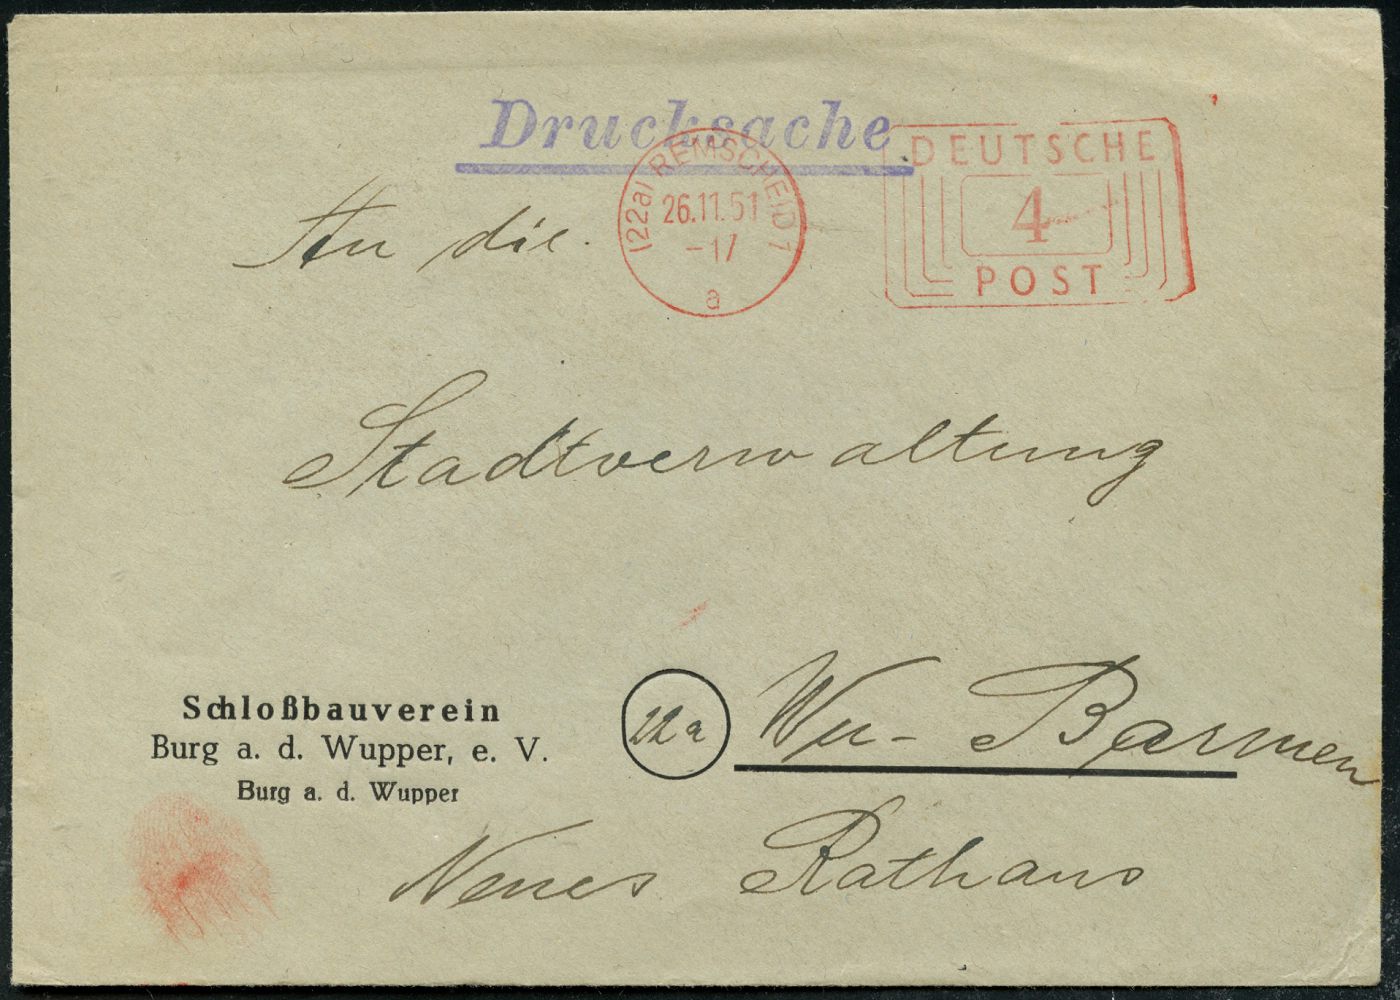 Drucksache
(22a) REMSCHEID 1
26.11.51
-17
a
DEUTSCHE
4
POST
An die
Stadtverwaltung
Schloßbauverein
Burg a. d. Wupper, e. V.
Burg a. d. Wupper
22a Wu-Barmen
Neues Rathaus